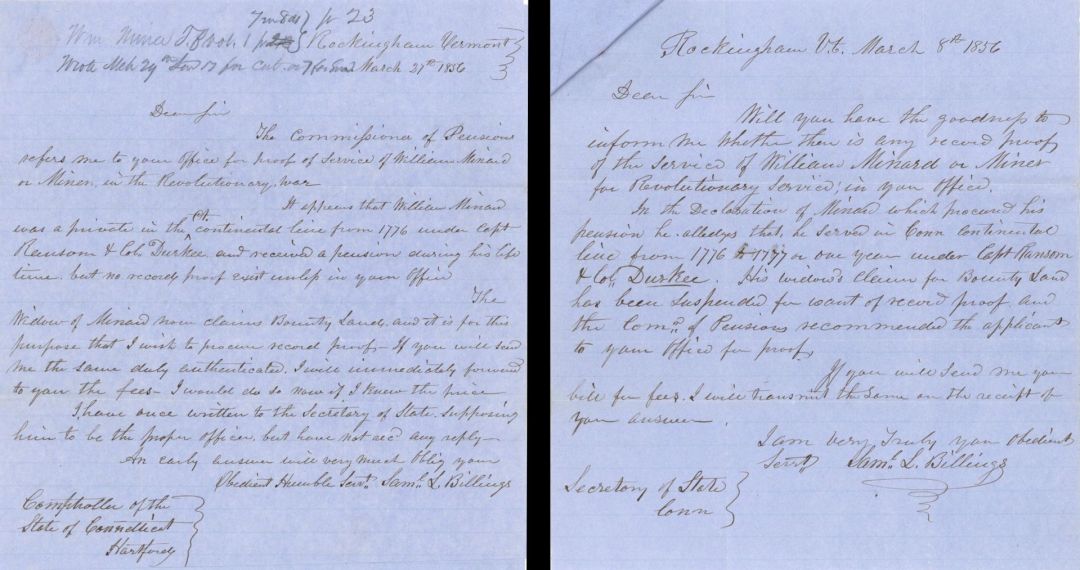 Wm Miner
Rockingham Vermont
March 27th 1856
Dear Sir
The Commissioner of Pensions
refers me to your Office for proof of Service of William Minard
or Miner, in the Revolutionary war
It appears that William Minard
was a private in the Ct. continental line from 1776 under Capt
Ransom & Col. Durkee and received a pension during his life
time. but no record proof exist unless in your Office
The
Widow of Minard now claims Bounty Land, and it is for this
purpose that I wish to procure record proof - If you will send
me the same duly authenticated. I will immediately forward
to you the fees - I would do so now if I knew the price
I have once written to the Secretary of State, supposing
him to be the proper officer, but have not recd any reply -
An early answer will very much Oblig your
Obedient Humble Servt. Saml. L. Billings
Comptroller of the
State of Connecticut
Hartford
Rockingham Vt. March 8th 1856
Dear Sir
Will you have the goodness to
inform me whether there is any record proof
of the Service of William Minard or Miner
for Revolutionary Service; in your Office.
In the Declaration of Minard which procured his
pension he alledges that he served in Conn Continental
line from 1776 to 1777 or one year under Capt Ransom
& Col. Durkee. His widow's Claim for Bounty Land
has been suspended for want of record proof and
the Comr. of Pensions recommended the applicant
to your Office for proof,
If you will Send me your
bill for fees. I will transmit the Same on the receipt of
your answer.
I am very Truly your Obedient
Servt Saml. L. Billings
Secretary of State
Conn